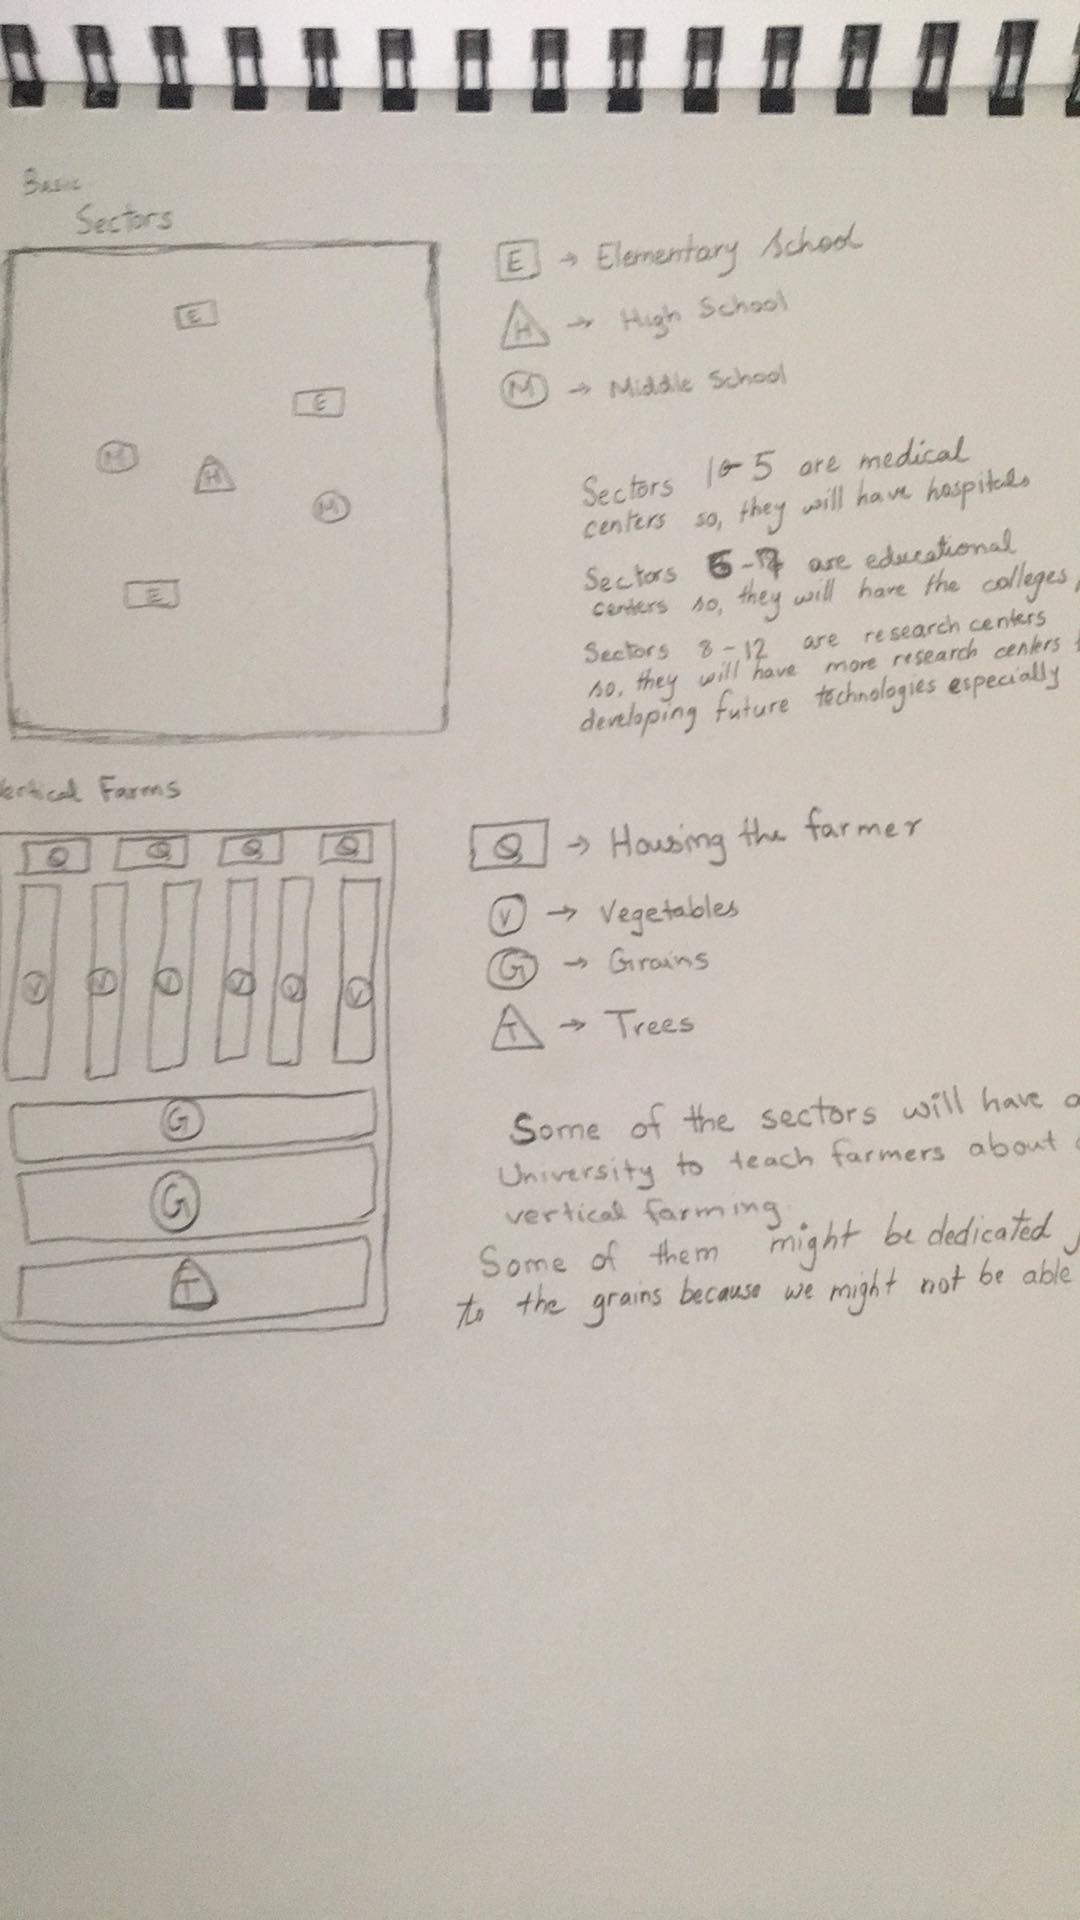 Basic
Sectors
E → Elementary School
E
H → High School
M → Middle School
E
M
H
M
E
Sectors 1-5 are medical
centers so, they will have hospitals
Sectors 6-7 are educational
centers so, they will have the colleges,
Sectors 8-12 are research centers
so, they will have more research centers
developing future technologies especially
Vertical Farms
Q Q Q Q
Q → Housing the farmer
V → Vegetables
G → Grains
T → Trees
V V V V V V
G
G
T
Some of the sectors will have a
University to teach farmers about
vertical farming.
Some of them might be dedicated
to the grains because we might not be able